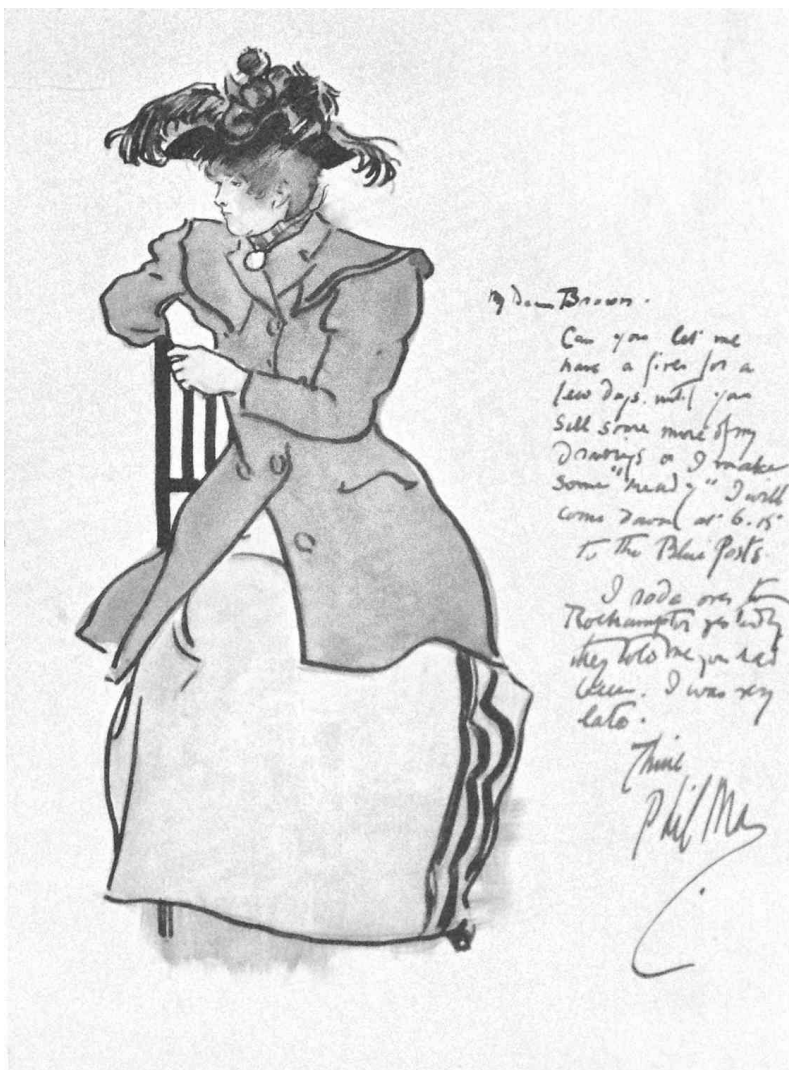 My Dear Brown.
Can you let me
have a fiver for a
few days. until you
sell some more of my
Drawings or I make
some "ready" I will
come down at 6.15
to the Blue Posts.
I rode over to
Roehampton yesterday
they told me you had
been. I was very
late.
Thine
Phil May